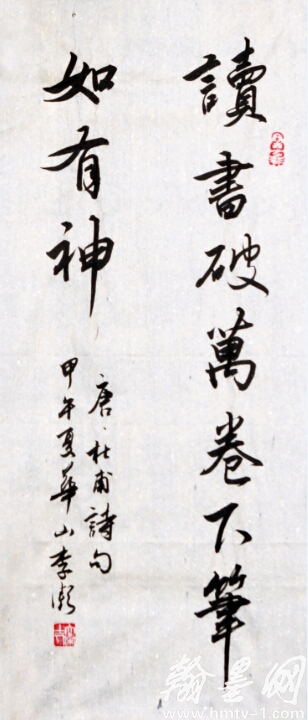 讀書破萬卷下筆
如有神
唐·杜甫詩句
甲午夏華山李
翰墨网
www.hmtv-1.com